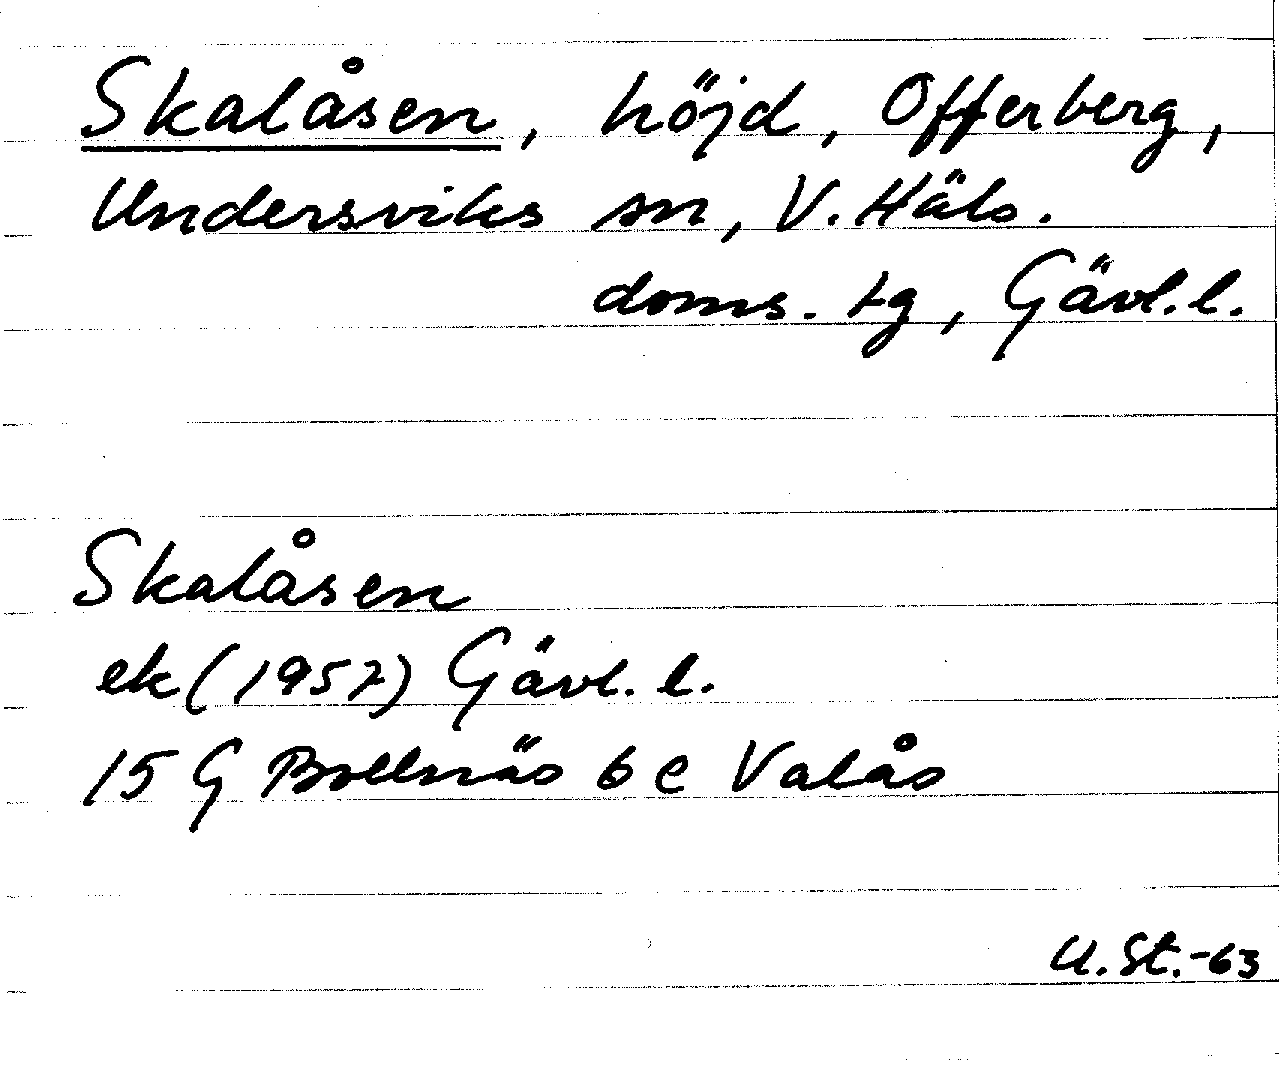 Skalåsen, höjd, Offerberg,
Undersviks sn, V. Häls.
doms. tg, Gävl. l.
Skalåsen
ek (1957) Gävl. l.
15 G Bollnäs 6 e Valås
U. St. -63